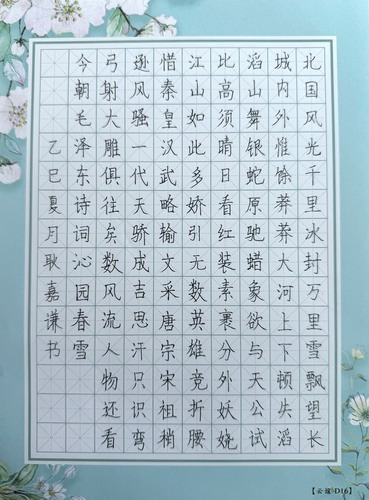 北国风光千里冰封万里雪飘望长
城内外惟馀莽莽大河上下顿失滔
滔山舞银蛇原驰蜡象欲与天公试
比高须晴日看红装素裹分外妖娆
江山如此多娇引无数英雄竞折腰
惜秦皇汉武略输文采唐宗宋祖稍
逊风骚一代天骄成吉思汗只识弯
弓射大雕俱往矣数风流人物还看
今朝毛泽东诗词沁园春雪
乙巳夏月耿嘉谦书
D16